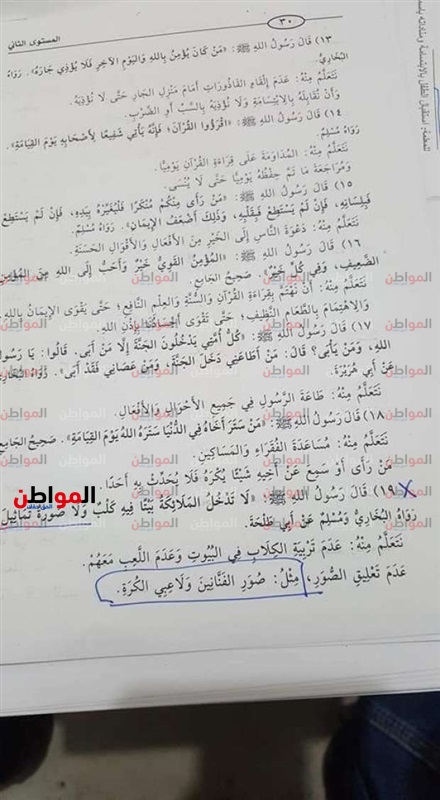 المستوى الثاني
٣٠
١٣) قَالَ رَسُولُ اللهِ ﷺ: «مَنْ كَانَ يُؤْمِنُ بِاللهِ وَالْيَوْمِ الآخِرِ فَلَا يُؤْذِي جَارَهُ». رَوَاهُ
البُخَارِيُّ.
نَتَعَلَّمُ مِنْهُ: عَدَمَ إِلْقَاءِ القَاذُورَاتِ أَمَامَ مَنْزِلِ الجَارِ حَتَّى لَا نُؤْذِيَهُ.
وَأَنْ نُقَابِلَهُ بِالِابْتِسَامَةِ وَلَا نُؤْذِيهِ بِالسَّبِّ أَوِ الضَّرْبِ.
١٤) قَالَ رَسُولُ اللهِ ﷺ: «اقْرَؤُوا القُرْآنَ؛ فَإِنَّهُ يَأْتِي شَفِيعًا لِأَصْحَابِهِ يَوْمَ القِيَامَةِ».
رَوَاهُ مُسْلِمٌ.
نَتَعَلَّمُ مِنْهُ: المُدَاوَمَةَ عَلَى قِرَاءَةِ القُرْآنِ يَوْمِيًّا.
وَمُرَاجَعَةَ مَا تَمَّ حِفْظُهُ يَوْمِيًّا حَتَّى لَا يُنْسَى.
١٥) قَالَ رَسُولُ اللهِ ﷺ: «مَنْ رَأَى مِنْكُمْ مُنْكَرًا فَلْيُغَيِّرْهُ بِيَدِهِ، فَإِنْ لَمْ يَسْتَطِعْ
فَبِلِسَانِهِ، فَإِنْ لَمْ يَسْتَطِعْ فَبِقَلْبِهِ، وَذَلِكَ أَضْعَفُ الإِيمَانِ». رَوَاهُ مُسْلِمٌ.
نَتَعَلَّمُ مِنْهُ: دَعْوَةَ النَّاسِ إِلَى الخَيْرِ مِنَ الأَفْعَالِ وَالأَقْوَالِ الحَسَنَةِ.
١٦) قَالَ رَسُولُ اللهِ ﷺ: «المُؤْمِنُ القَوِيُّ خَيْرٌ وَأَحَبُّ إِلَى اللهِ مِنَ المُؤْمِنِ
الضَّعِيفِ، وَفِي كُلٍّ خَيْرٌ». صَحِيحُ الجَامِعِ.
نَتَعَلَّمُ مِنْهُ: أَنْ نَهْتَمَّ بِقِرَاءَةِ القُرْآنِ وَالسُّنَّةِ وَالعِلْمِ النَّافِعِ؛ حَتَّى يَقْوَى الإِيمَانُ بِاللهِ.
وَالِاهْتِمَامِ بِالطَّعَامِ النَّظِيفِ؛ حَتَّى تَقْوَى أَجْسَادُنَا بِإِذْنِ اللهِ.
١٧) قَالَ رَسُولُ اللهِ ﷺ: «كُلُّ أُمَّتِي يَدْخُلُونَ الجَنَّةَ إِلَّا مَنْ أَبَى. قَالُوا: يَا رَسُولَ
اللهِ، وَمَنْ يَأْبَى؟ قَالَ: مَنْ أَطَاعَنِي دَخَلَ الجَنَّةَ، وَمَنْ عَصَانِي فَقَدْ أَبَى». رَوَاهُ البُخَارِيُّ
عَنْ أَبِي هُرَيْرَةَ.
نَتَعَلَّمُ مِنْهُ: طَاعَةَ الرَّسُولِ فِي جَمِيعِ الأَحْوَالِ وَالأَفْعَالِ.
١٨) قَالَ رَسُولُ اللهِ ﷺ: «مَنْ سَتَرَ أَخَاهُ فِي الدُّنْيَا سَتَرَهُ اللهُ يَوْمَ القِيَامَةِ». صَحِيحُ الجَامِعِ
نَتَعَلَّمُ مِنْهُ: مُسَاعَدَةَ الفُقَرَاءِ وَالمَسَاكِينِ.
مَنْ رَأَى أَوْ سَمِعَ عَنْ أَخِيهِ شَيْئًا يُكْرَهُ فَلَا يُحَدِّثْ بِهِ أَحَدًا.
١٩) قَالَ رَسُولُ اللهِ ﷺ: «لَا تَدْخُلُ المَلَائِكَةُ بَيْتًا فِيهِ كَلْبٌ وَلَا صُورَةُ تَمَاثِيلَ
رَوَاهُ البُخَارِيُّ وَمُسْلِمٌ عَنْ أَبِي طَلْحَةَ.
نَتَعَلَّمُ مِنْهُ: عَدَمَ تَرْبِيَةِ الكِلَابِ فِي البُيُوتِ وَعَدَمَ اللَّعِبِ مَعَهُمْ.
عَدَمَ تَعْلِيقِ الصُّوَرِ، مِثْلُ: صُوَرِ الفَنَّانِينَ وَلَاعِبِي الكُرَةِ.
المواطن